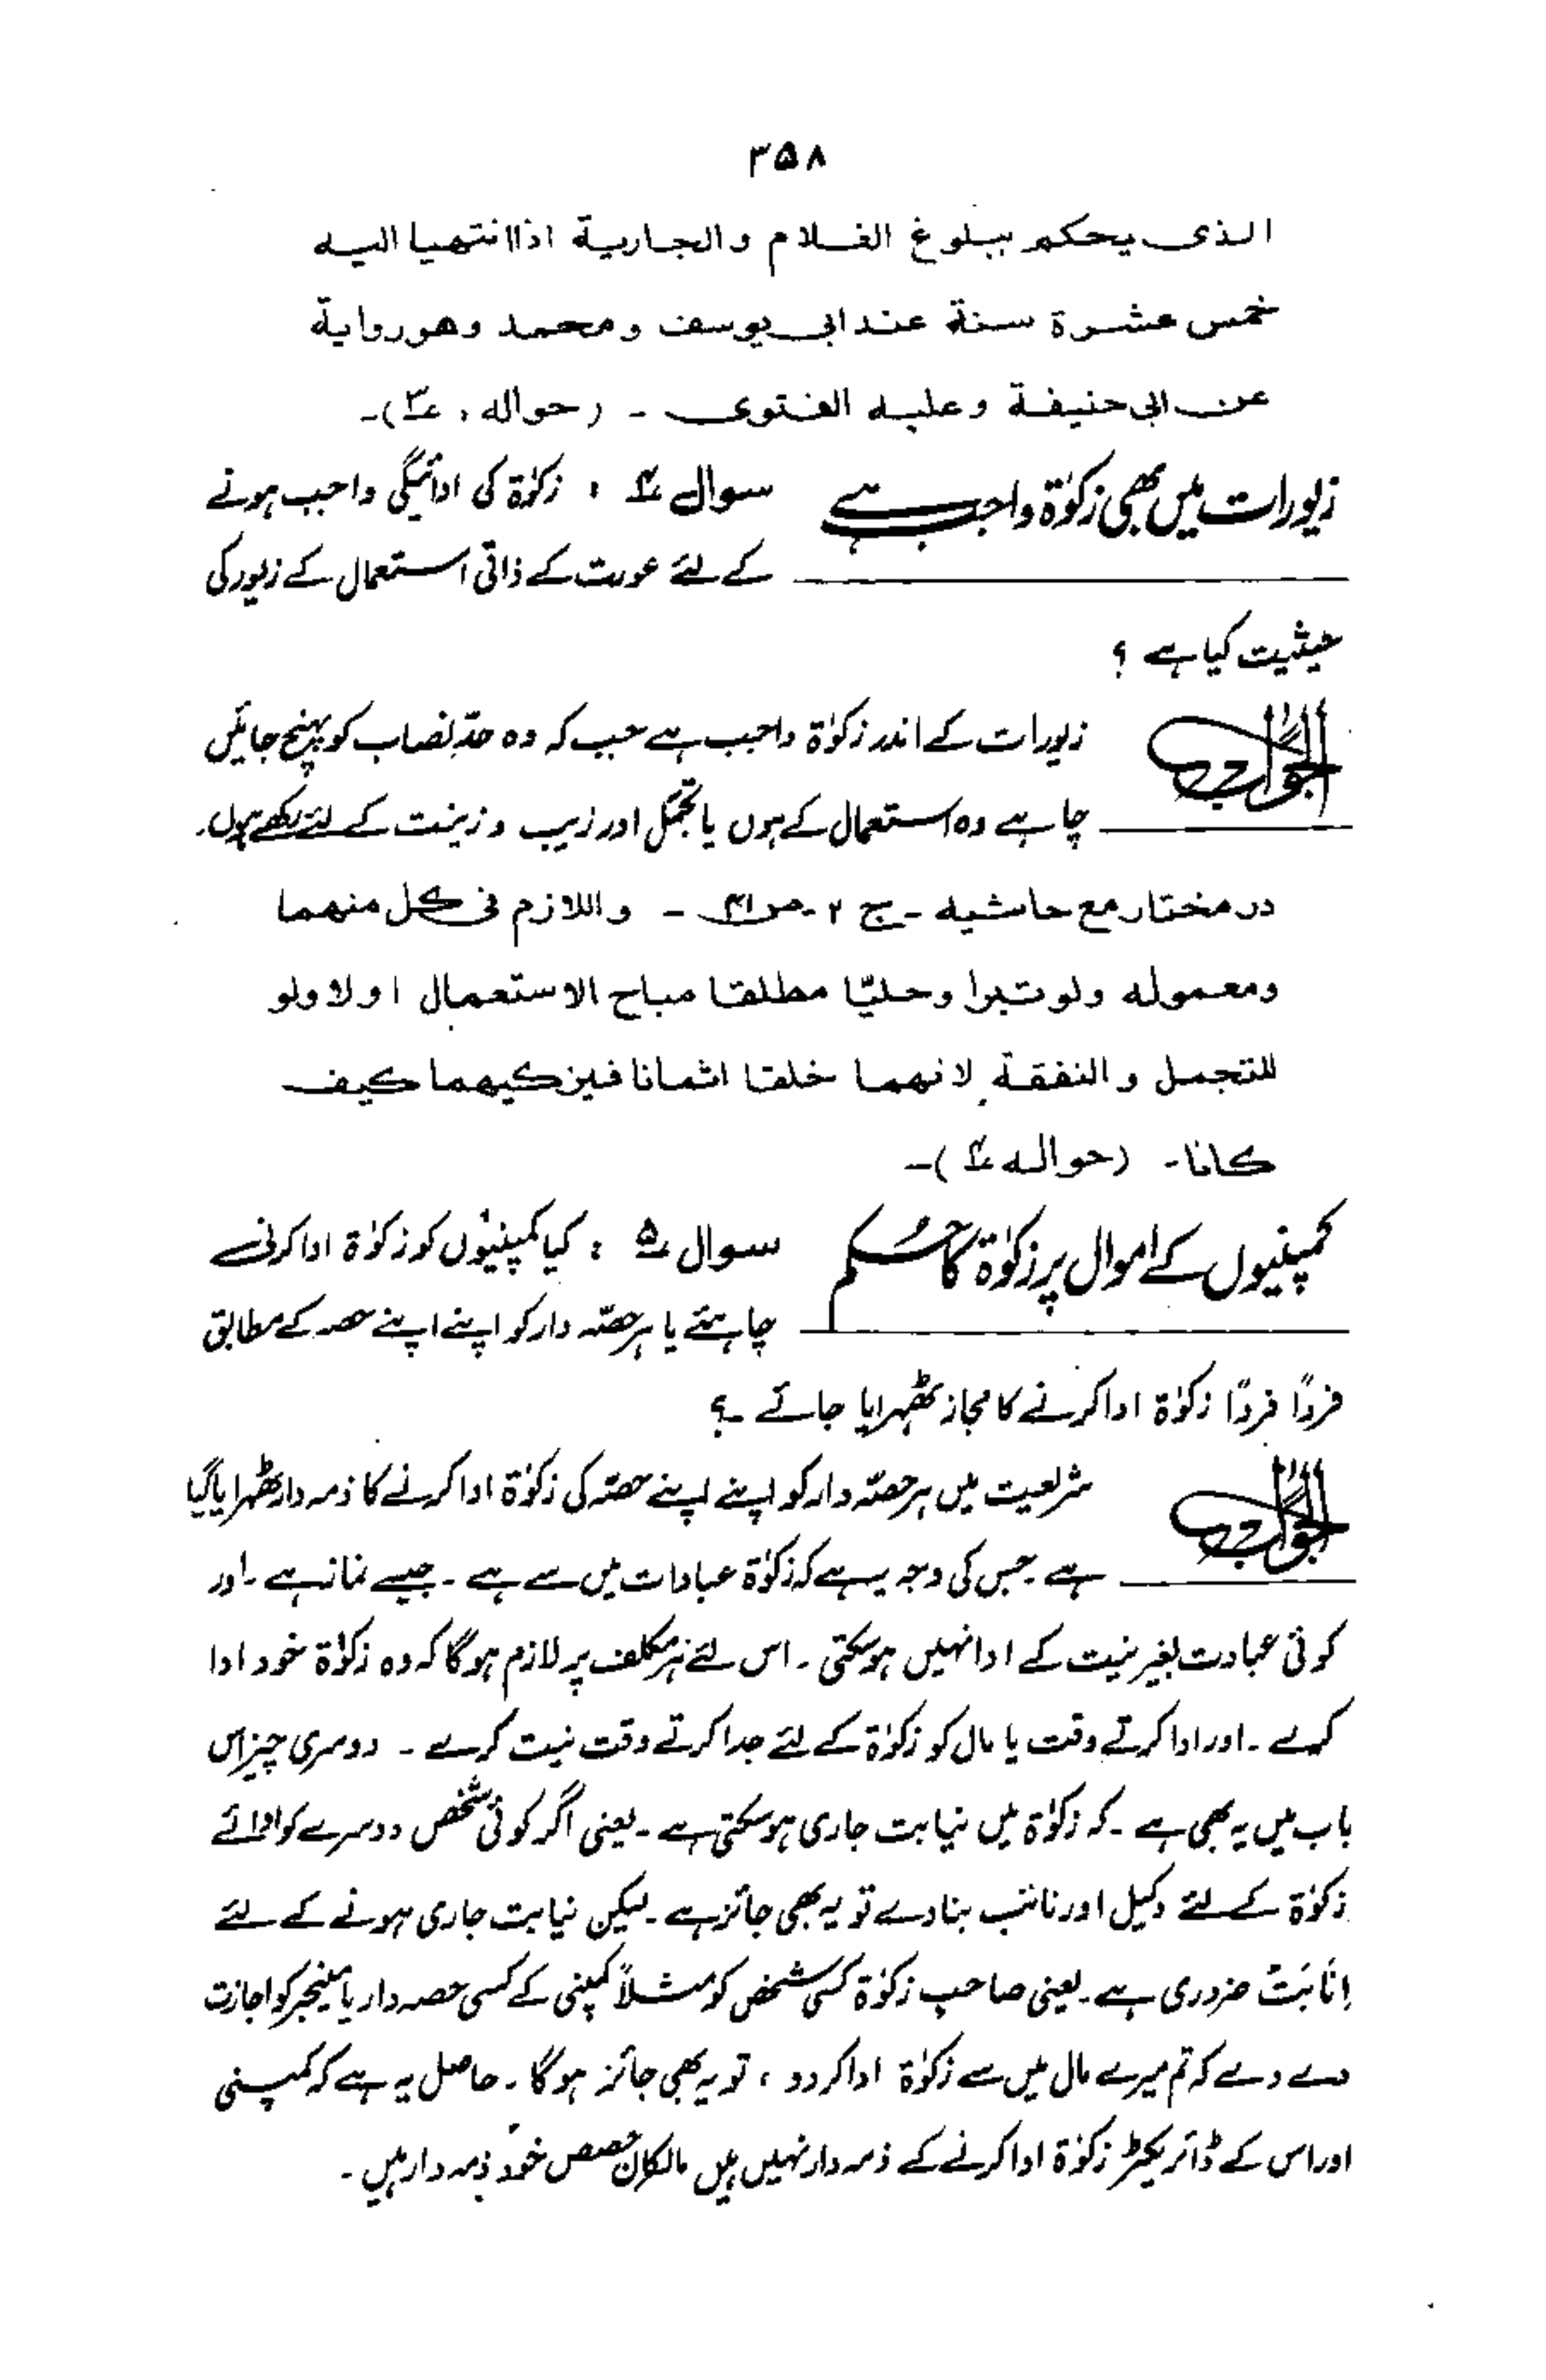 ۳۵۸
الذی یحکم ببلوغ الغلام والجاریة اذا انتهیا الیه
خمس عشرة سنة عند ابی یوسف ومحمد وهو روایة
عن ابی حنیفة وعلیه الفتوی ۔ (حواله، ۳؎)۔
زیورات میں بھی زکوٰۃ واجب ہے سوال ۴؎ : زکوٰۃ کی ادائیگی واجب ہونے
کے لئے عورت کے ذاتی استعمال کے زیور کی
حیثیت کیا ہے ؟
الجواب زیورات کے اندر زکوٰۃ واجب ہے جب کہ وہ حدِّ نصاب کو پہنچ جائیں
چاہے وہ استعمال کے ہوں یا تجمّل اور زیب و زینت کے لئے رکھے ہوں۔
در مختار مع حاشیه ۔ ج ۲ ۔ ص ۴۱ ۔ واللازم فی کل منهما
ومعموله ولو تبرا وحلیّا مطلقا مباح الاستعمال اولا ولو
للتجمل والنفقة لانهما خلقا اثمانا فیزکیهما کیف
کانا۔ (حواله ۴؎)۔
کمپنیوں کے اموال پر زکوٰۃ کا حُکم سوال ۵؎ : کیا کمپنیوں کو زکوٰۃ ادا کرنی
چاہئے یا ہر حصّہ دار کو اپنے اپنے حصہ کے مطابق
فردًا فردًا زکوٰۃ ادا کرنے کا مجاز ٹھہرایا جائے ۔؟
الجواب شریعت میں ہر حصّہ دار کو اپنے اپنے حصّہ کی زکوٰۃ ادا کرنے کا ذمہ دار ٹھہرایا گیا
ہے ۔ جس کی وجہ یہ ہے کہ زکوٰۃ عبادات میں سے ہے ۔ جیسے نماز ہے ۔ اور
کوئی عبادت بغیر نیت کے ادا نہیں ہو سکتی ۔ اس لئے ہر مکلف پر لازم ہو گا کہ وہ زکوٰۃ خود ادا
کرے ۔ اور ادا کرتے وقت یا مال کو زکوٰۃ کے لئے جدا کرتے وقت نیت کرے ۔ دوسری چیز اس
باب میں یہ بھی ہے ۔ کہ زکوٰۃ میں نیابت جاری ہو سکتی ہے ۔ یعنی اگر کوئی شخص دوسرے کو ادائے
زکوٰۃ کے لئے وکیل اور نائب بنا دے تو یہ بھی جائز ہے ۔ لیکن نیابت جاری ہونے کے لئے
اِنَابَتْ ضروری ہے ۔ یعنی صاحب زکوٰۃ کسی شخص کو مثلاً کمپنی کے کسی حصہ دار یا مینیجر کو اجازت
دے دے کہ تم میرے مال میں سے زکوٰۃ ادا کر دو ، تو یہ بھی جائز ہو گا ۔ حاصل یہ ہے کہ کمپنی
اور اس کے ڈائریکٹر زکوٰۃ ادا کرنے کے ذمہ دار نہیں ہیں مالکانِ حصص خود ذمہ دار ہیں ۔